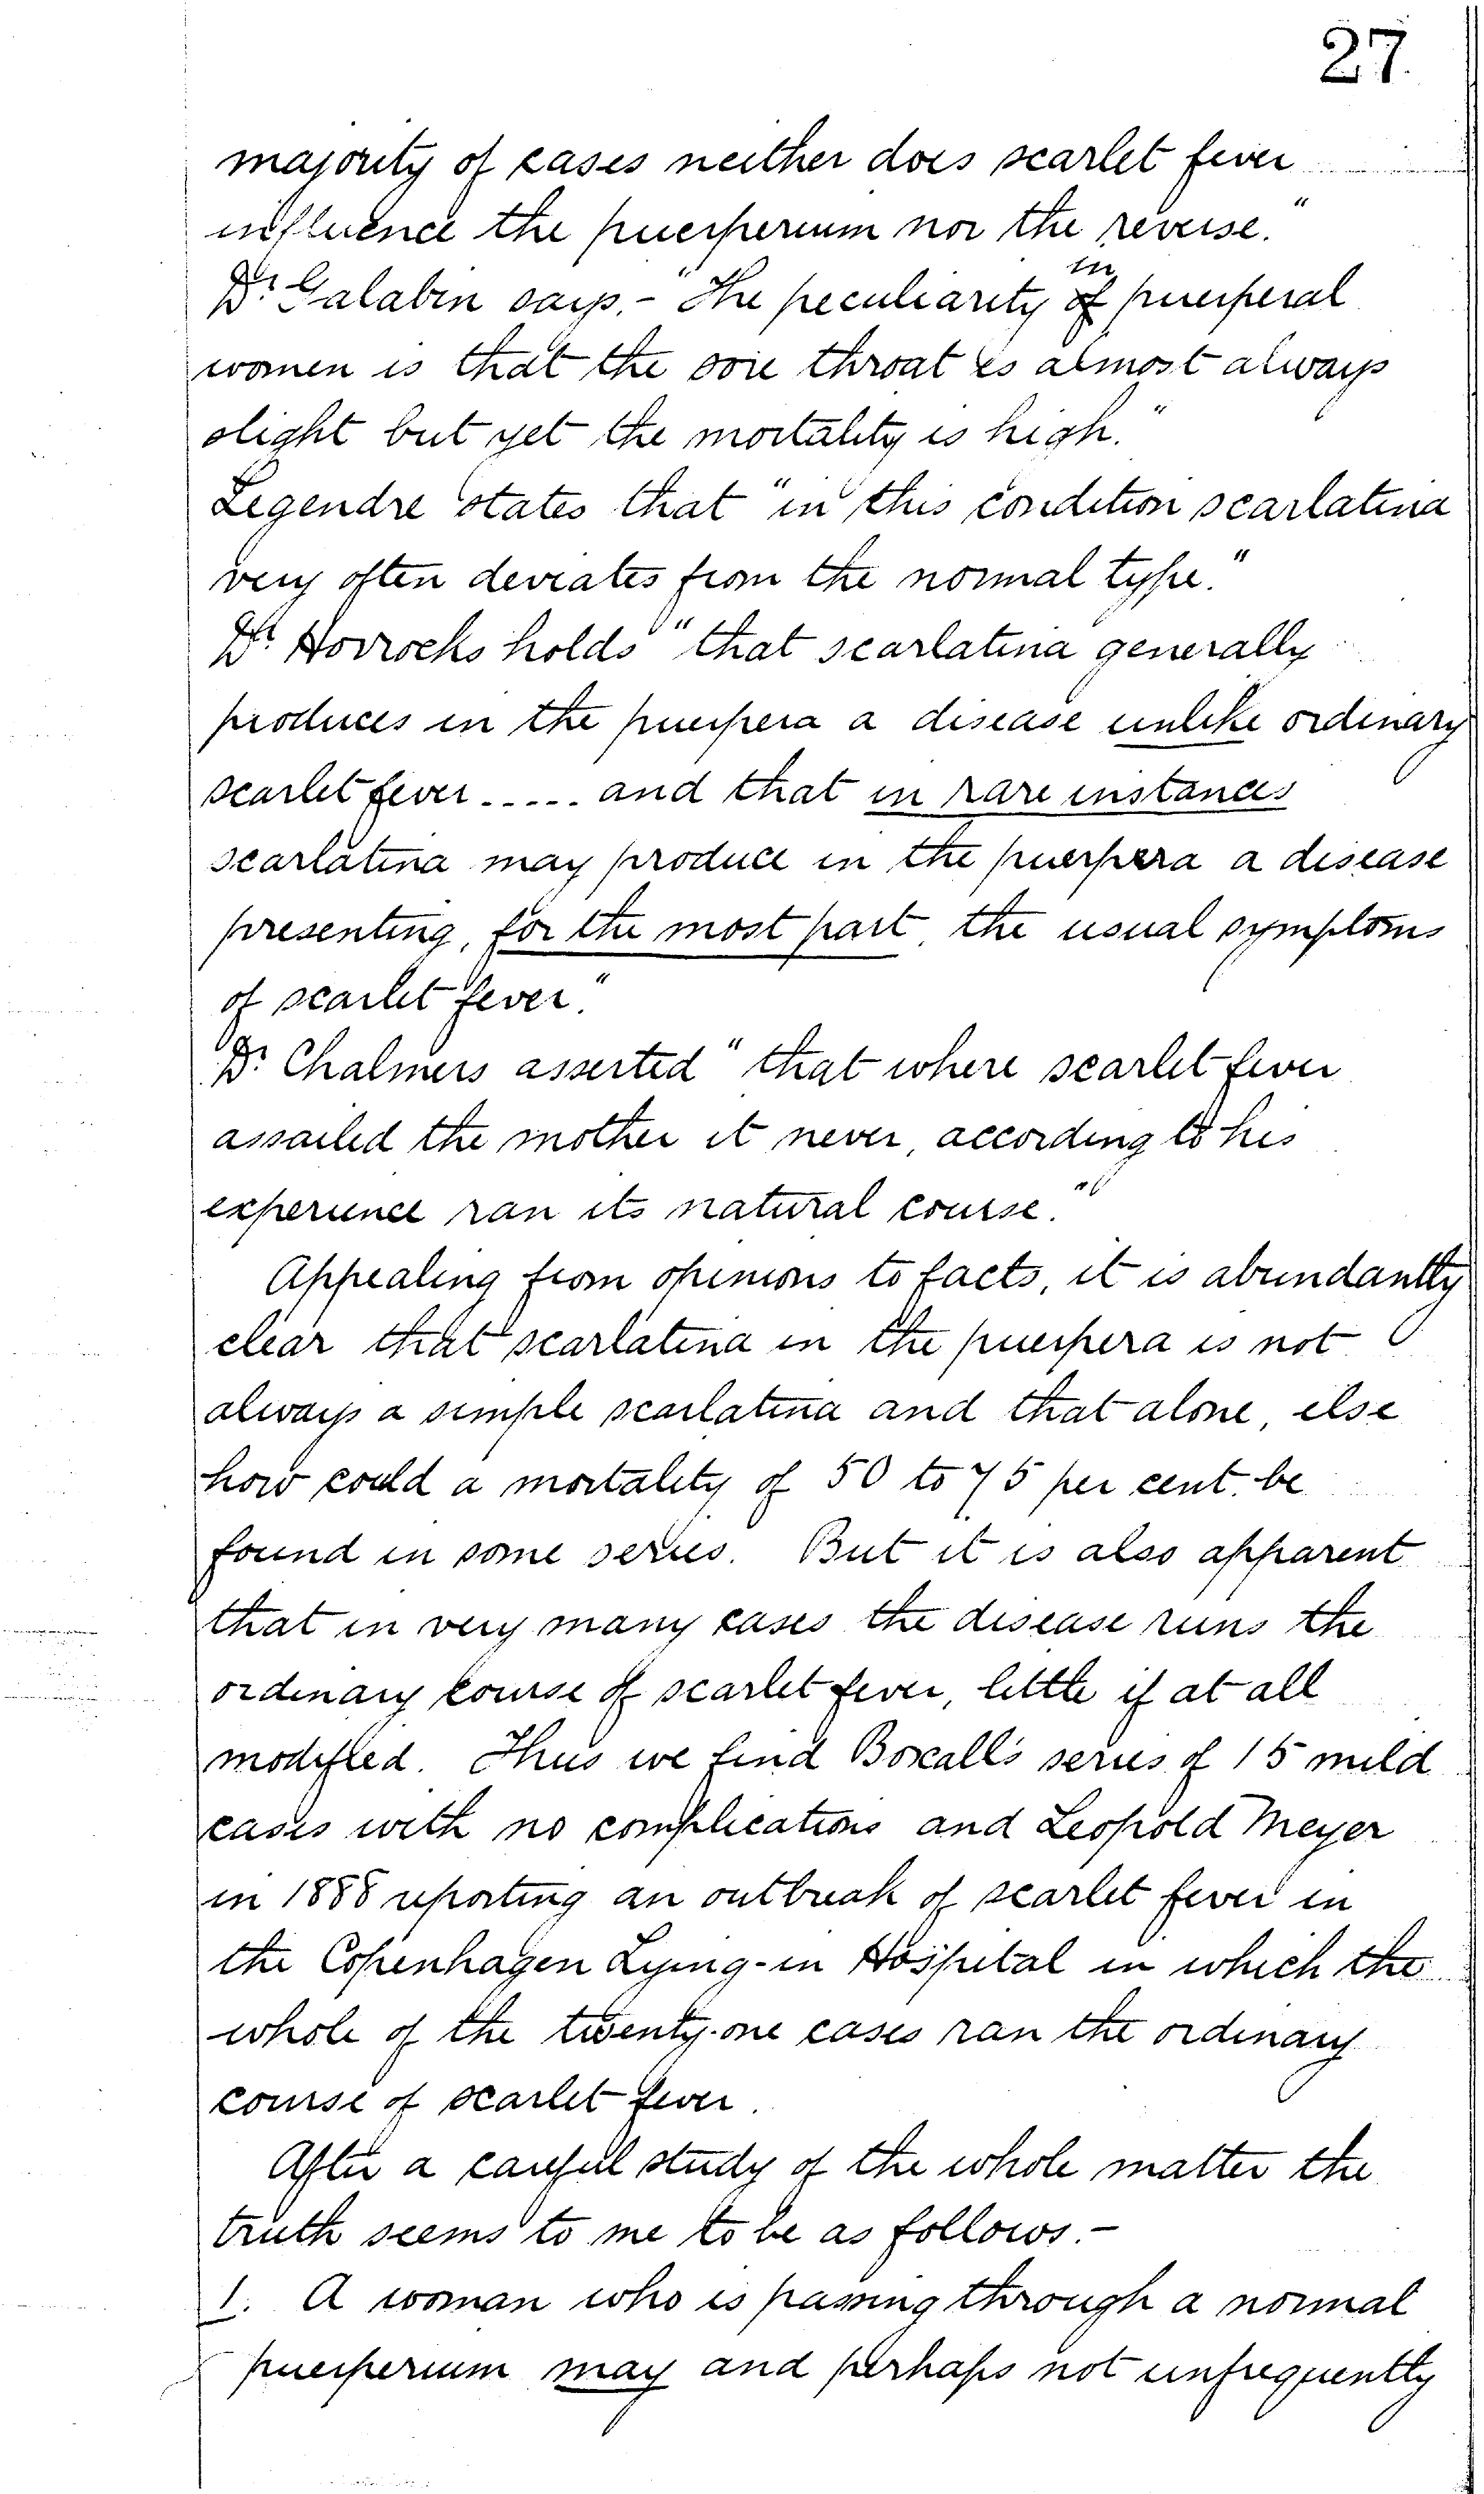 27.
majority of cases neither does scarlet fever
influence the puerperium nor the reverse."
Dr. Galabin says,- "The peculiarity in puerperal
women is that the sore throat is almost always
slight but yet the mortality is high."
Legendre states that "in this condition scarlatina
very often deviates from the normal type."
Dr. Horrocks holds "that scarlatina generally
produces in the puerpera a disease unlike ordinary
scarlet fever..... and that in rare instances
scarlatina may produce in the puerpera a disease
presenting, for the most part, the usual symptoms
of scarlet fever."
Dr. Chalmers asserted "that where scarlet fever
assailed the mother it never, according to his
experience ran its natural course."
Appealing from opinions to facts, it is abundantly
clear that scarlatina in the puerpera is not
always a simple scarlatina and that alone, else
how could a mortality of 50 to 75 per cent. be
found in some series. But it is also apparent
that in very many cases the disease runs the
ordinary course of scarlet fever, little if at all
modified. Thus we find Boxall's series of 15 mild
cases with no complications and Leopold Meyer
in 1888 reporting an outbreak of scarlet fever in
the Copenhagen Lying-in Hospital in which the
whole of the twenty-one cases ran the ordinary
course of scarlet fever.
After a careful study of the whole matter the
truth seems to me to be as follows.-
1. A woman who is passing through a normal
puerperium may and perhaps not unfrequently